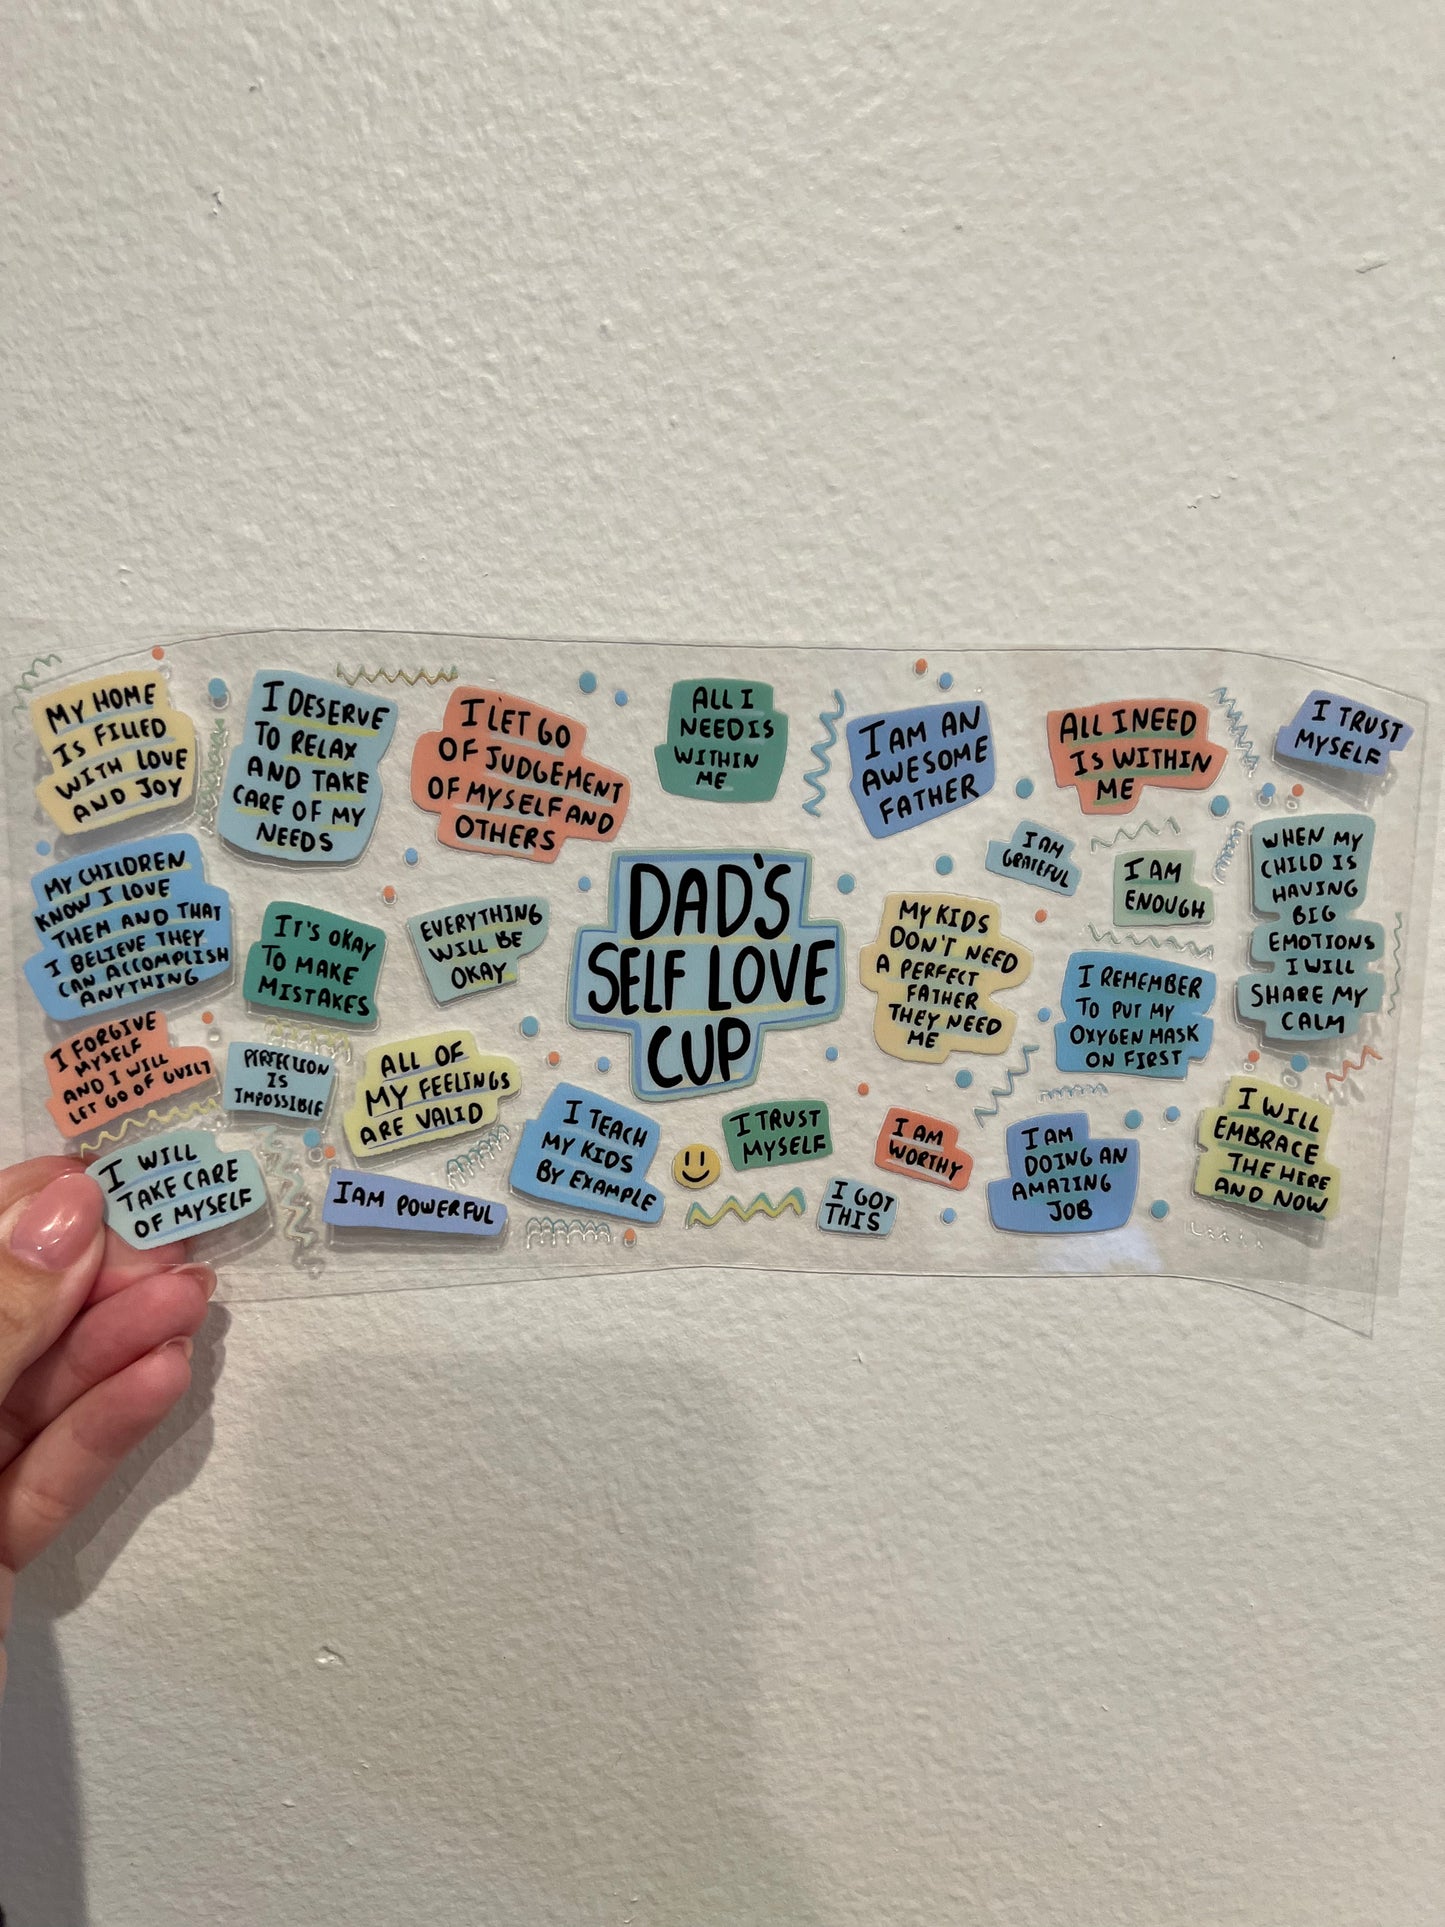 MY HOME
IS FILLED
WITH LOVE
AND JOY
I DESERVE
TO RELAX
AND TAKE
CARE OF MY
NEEDS
I LET GO
OF JUDGEMENT
OF MYSELF AND
OTHERS
ALL I
NEED IS
WITHIN
ME
I AM AN
AWESOME
FATHER
ALL I NEED
IS WITHIN
ME
I TRUST
MYSELF
MY CHILDREN
KNOW I LOVE
THEM AND THAT
I BELIEVE THEY
CAN ACCOMPLISH
ANYTHING
IT'S OKAY
TO MAKE
MISTAKES
EVERYTHING
WILL BE
OKAY
DAD'S
SELF LOVE
CUP
MY KIDS
DON'T NEED
A PERFECT
FATHER
THEY NEED
ME
I AM
GRATEFUL
I AM
ENOUGH
WHEN MY
CHILD IS
HAVING
BIG
EMOTIONS
I WILL
SHARE MY
CALM
I REMEMBER
TO PUT MY
OXYGEN MASK
ON FIRST
I FORGIVE
MYSELF
AND I WILL
LET GO OF GUILT
PERFECTION
IS
IMPOSSIBLE
ALL OF
MY FEELINGS
ARE VALID
I TEACH
MY KIDS
BY EXAMPLE
I TRUST
MYSELF
I AM
WORTHY
I AM
DOING AN
AMAZING
JOB
I WILL
EMBRACE
THE HERE
AND NOW
I WILL
TAKE CARE
OF MYSELF
I AM POWERFUL
I GOT
THIS